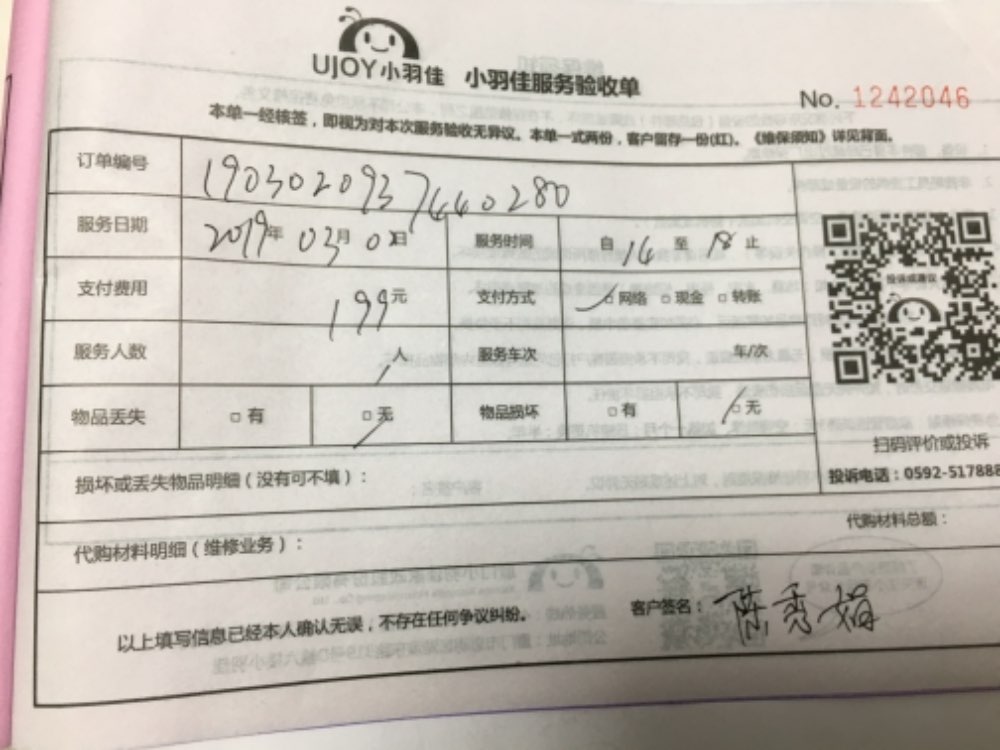 UJOY小羽佳 小羽佳服务验收单
No. 1242046
本单一经核签，即视为对本次服务验收无异议。本单一式两份，客户留存一份(红)。《维保须知》详见背面。
订单编号 1903020937440280
服务日期 2019年03月0日 服务时间 自14至18止
支付费用 199元 支付方式 网络 □现金 □转账
服务人数 1人 服务车次 车/次
物品丢失 □有 □无 物品损坏 □有 □无
投诉或建议
扫码评价或投诉
投诉电话：0592-517888
损坏或丢失物品明细（没有可不填）：
代购材料明细（维修业务）： 代购材料总额：
以上填写信息已经本人确认无误，不存在任何争议纠纷。 客户签名：陈秀娟